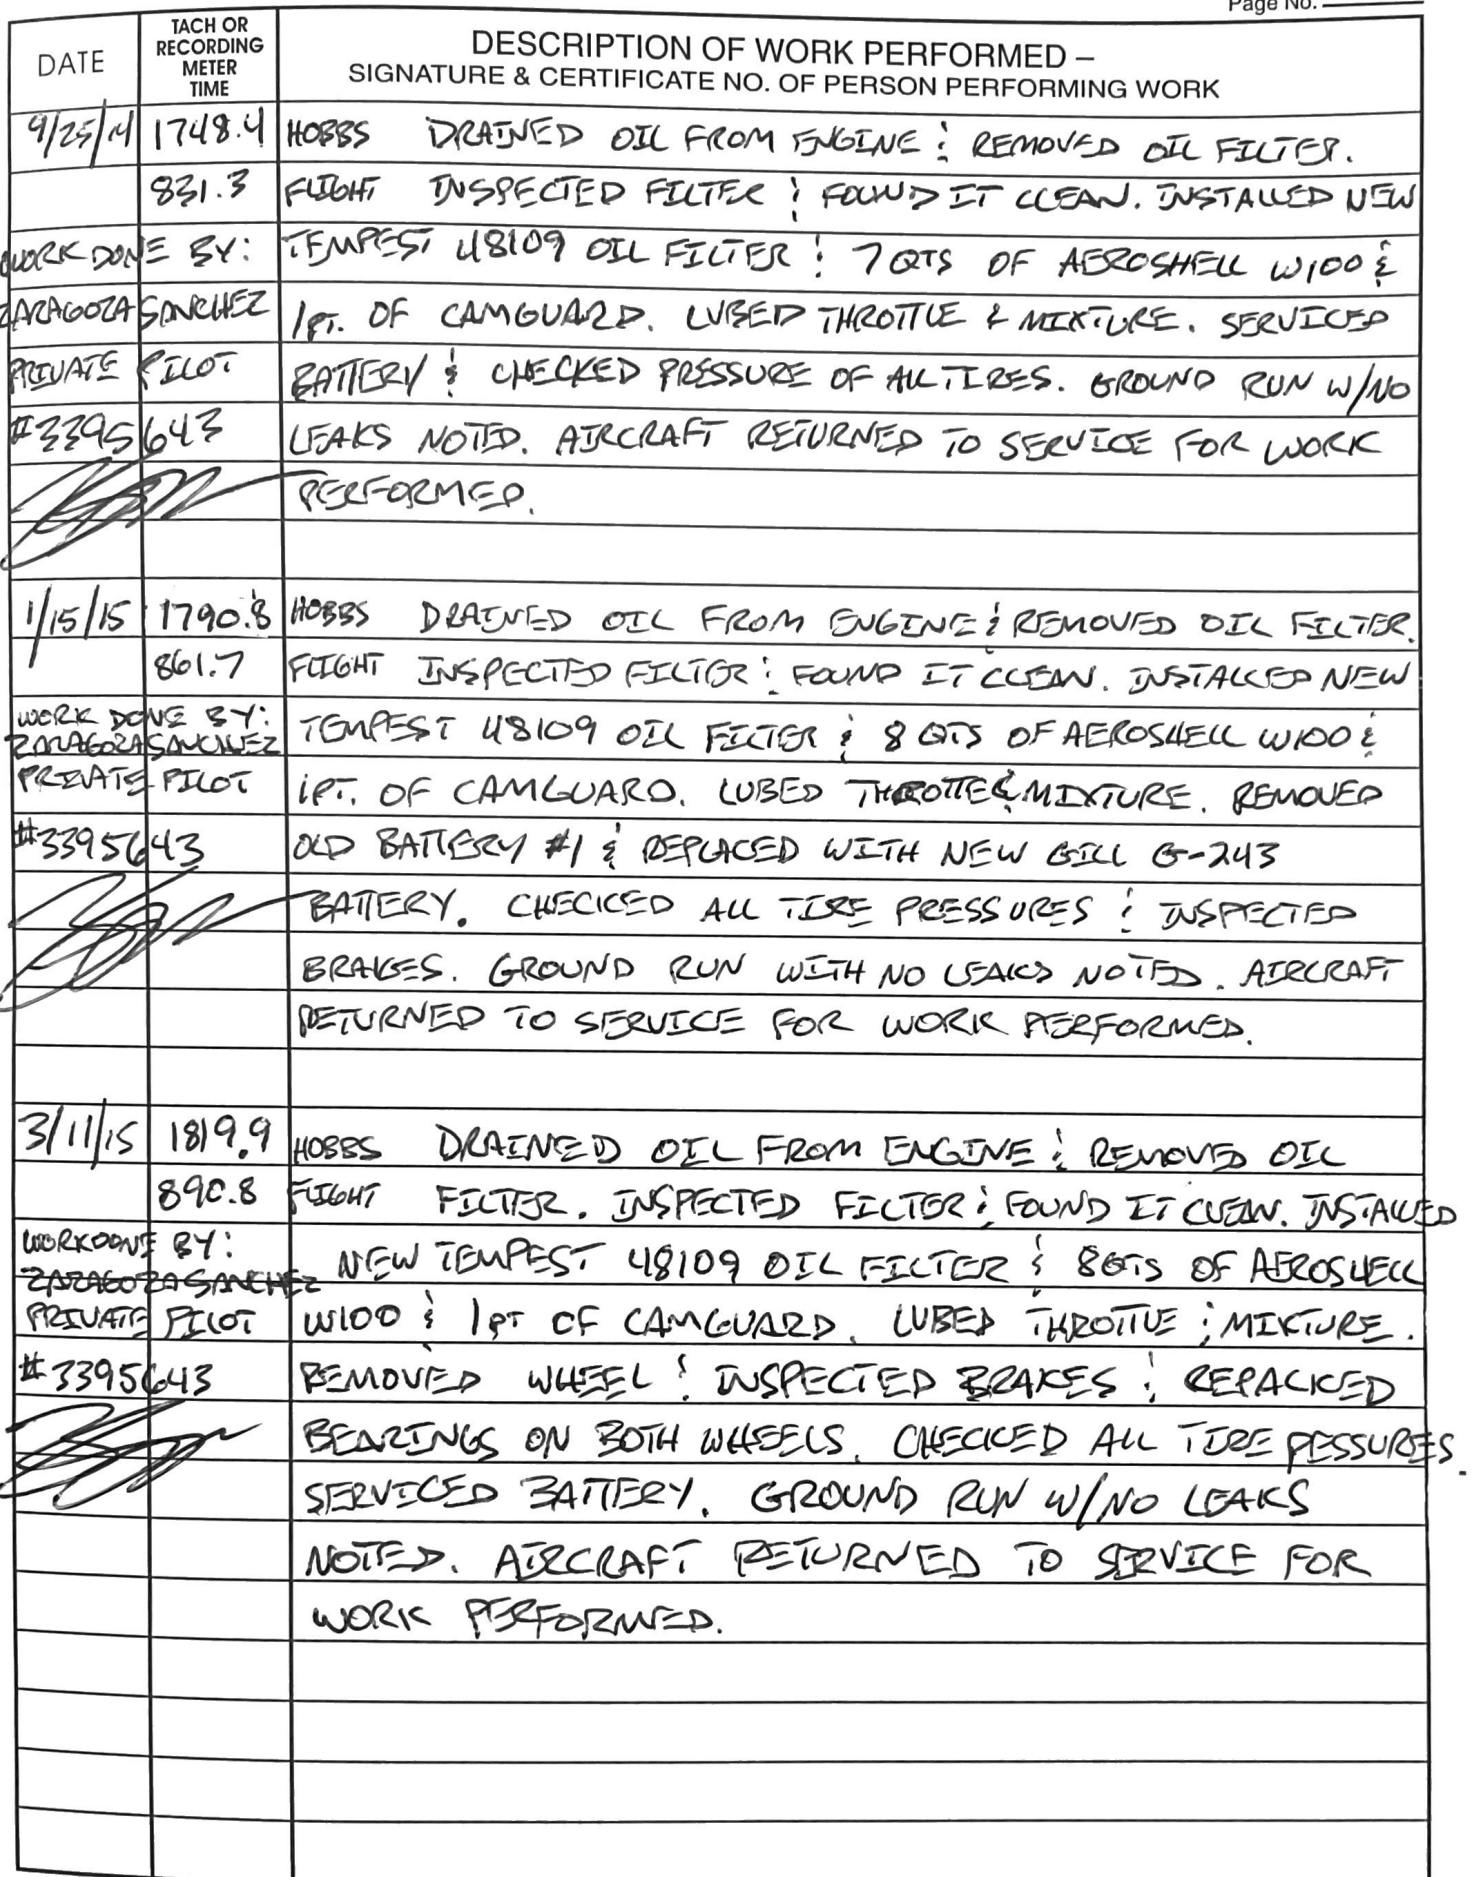 Page No.
DATE
TACH OR
RECORDING
METER
TIME
DESCRIPTION OF WORK PERFORMED –
SIGNATURE & CERTIFICATE NO. OF PERSON PERFORMING WORK
9/25/14 1748.4 HOBBS DRAINED OIL FROM ENGINE & REMOVED OIL FILTER.
831.3 FLIGHT INSPECTED FILTER & FOUND IT CLEAN. INSTALLED NEW
WORK DONE BY: TEMPEST 48109 OIL FILTER & 7 QTS OF AEROSHELL W100 &
ZARAGOZA SANCHEZ 1PT. OF CAMGUARD. LUBED THROTTLE & MIXTURE. SERVICED
PRIVATE PILOT BATTERY & CHECKED PRESSURE OF ALL TIRES. GROUND RUN W/NO
#3395643 LEAKS NOTED. AIRCRAFT RETURNED TO SERVICE FOR WORK
PERFORMED.
1/15/15 1790.8 HOBBS DRAINED OIL FROM ENGINE & REMOVED OIL FILTER.
861.7 FLIGHT INSPECTED FILTER & FOUND IT CLEAN. INSTALLED NEW
WORK DONE BY:
ZARAGOZA SANCHEZ TEMPEST 48109 OIL FILTER & 8 QTS OF AEROSHELL W100 &
PRIVATE PILOT 1PT. OF CAMGUARD. LUBED THROTTE & MIXTURE. REMOVED
#3395643 OLD BATTERY #1 & REPLACED WITH NEW GILL G-243
BATTERY. CHECKED ALL TIRE PRESSURES & INSPECTED
BRAKES. GROUND RUN WITH NO LEAKS NOTED. AIRCRAFT
RETURNED TO SERVICE FOR WORK PERFORMED.
3/11/15 1819.9 HOBBS DRAINED OIL FROM ENGINE & REMOVED OIL
890.8 FLIGHT FILTER. INSPECTED FILTER & FOUND IT CLEAN. INSTALLED
WORK DONE BY:
ZARAGOZA SANCHEZ NEW TEMPEST 48109 OIL FILTER & 8QTS OF AEROSHELL
PRIVATE PILOT W100 & 1PT OF CAMGUARD. LUBED THROTTLE & MIXTURE.
#3395643 REMOVED WHEEL & INSPECTED BRAKES & REPACKED
BEARINGS ON BOTH WHEELS. CHECKED ALL TIRE PESSURES.
SERVICED BATTERY. GROUND RUN W/NO LEAKS
NOTED. AIRCRAFT RETURNED TO SERVICE FOR
WORK PERFORMED.